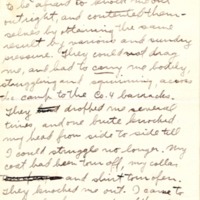 to be afraid to avoid me out
out right, and contented them-
selves by attaining the same
result by various and sundry
pressure. They could not drag
me, and had to carry me bodily,
struggling and squirming across
the camp to the Co. 4 barracks.
They dropped me several
times, and one brute knocked
my head from side to side till
I could struggle no longer. My
coat had been torn off, my collar
and shirt torn open.
They knocked me out. I came to